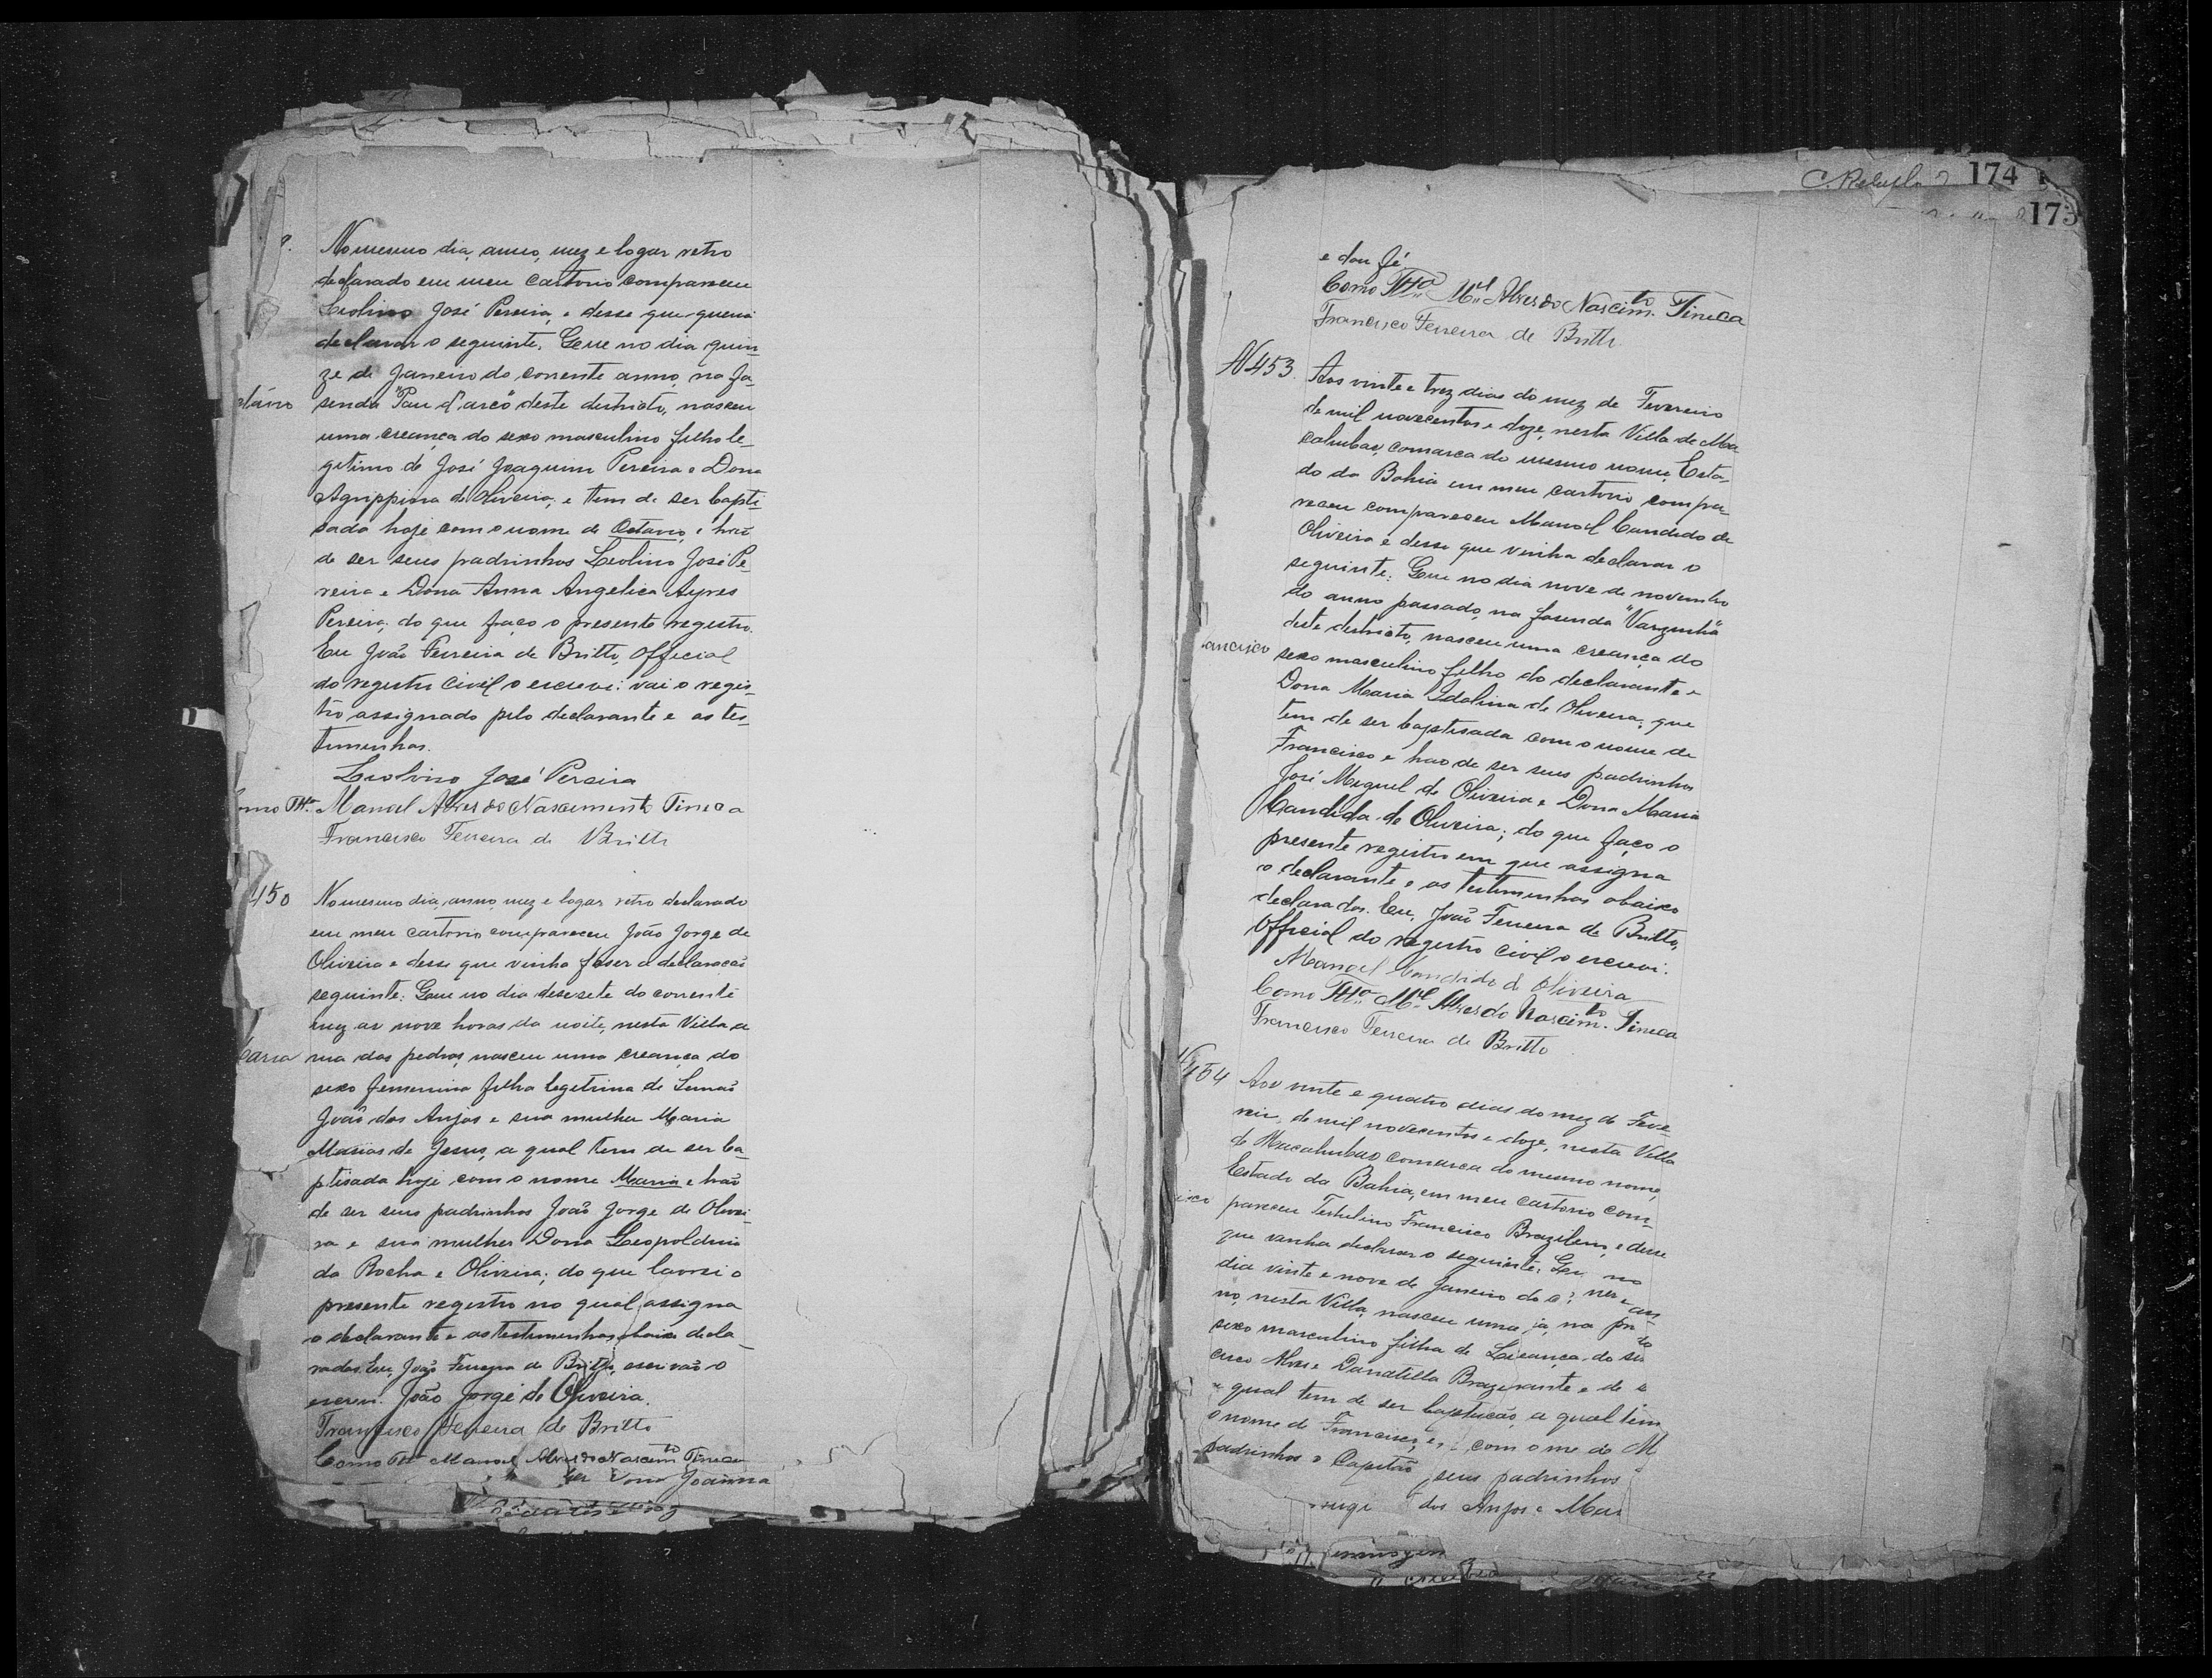 No mesmo dia, anno, mez e logar retro
declarado em meu cartorio compareceu
Leolino José Pereira, e desse que queria
declarar o seguinte. Que no dia quin-
ze de Janeiro do corrente anno, na fa-
senda "Pau d'arco" deste destricto, nasceu
uma creança do sexo masculino filho le-
gitimo de José Joaquim Pereira e Dona
Agrippina de Oliveira, e tem de ser bapti-
sado hoje com o nome de Octavio, e hão
de ser seus padrinhos Leolino José Pe-
reira e Dona Anna Angelica Ayres
Pereira; do que faço o presente registro.
Eu João Ferreira de Britto, official
do registro civil o escrevi: vai o regis-
tro assignado pelo declarante e as tes-
timunhas.
Leolino José Pereira
como Ttª Manoel Alves do Nascimento Tineca
Francisco Ferreira de Britto
450
No mesmo dia, anno, mez e logar retro declarado
em meu cartorio compareceu João Jorge de
Oliveira e desse que vinha faser a declaração
seguinte: Que no dia desesete do corrente
mez as nove horas da noite, nesta Villa a
rua das pedras, nasceu uma creança do
sexo femenina filha legitima de
João dos Anjos e sua mulher Maria
de Jesus, a qual tem de ser ba-
ptisada hoje com o nome Maria e hão
de ser seus padrinhos João Jorge de Olivei-
ra e sua mulher Dona Leopoldina
da Rocha e Oliveira; do que lavrei o
presente registro no qual assigna
o declarante e as testimunhas abaixo decla-
radas. Eu, João Ferreira de Britto, escrivão o
escrevi. João Jorge de Oliveira.
Francisco Ferreira de Britto
Como Ttª Manoel Alves do Nascimto Tineca
Dona Joanna
174
173
e dou fé
Como Ttª Mel Alves do Nascimto Tineca
Francisco Ferreira de Britto
N 453.
Aos vinte e trez dias do mez de Fevereiro
de mil novecentos e doze, nesta Villa de Ma
cahubas, comarca do mesmo nome, Esta-
do da Bahia em meu cartorio compa-
receu compareceu Manoel Candido de
Oliveira e desse que vinha declarar o
seguinte: Que no dia nove de novembro
do anno passado, na fasenda "Varginha"
deste destricto, nasceu uma creança do
ancisco
sexo masculino filho do declarante e
Dona Maria Idalina de Oliveira; que
tem de ser baptisada com o nome de
Francisco e hao de ser seus padrinhos
José Miguel de Oliveira e Dona Maria
Candida de Oliveira; do que faço o
presente registro em que assigna
o declarante e as testimunhas abaixo
declaradas. Eu, João Ferreira de Britto,
Official do registro civil o escrevi.
Manoel Candido de Oliveira
Como Ttª Mel Alves do Nascimto Tineca
Francisco Ferreira de Britto
454
Aos vinte e quatro dias do mez de Feve-
reir, de mil novecentos e doze, nesta Villa
de Macahubas comarca do mesmo nome,
Estado da Bahia, em meu cartorio com-
pareceu Francisco e desse
que vinha declarar o seguinte: no
dia vinte e nove de Janeiro do
no, nesta Villa, nasceu uma
sexo masculino filha de
cisco Alves e
a qual tem de ser a qual tem
o nome de Francisco, com o me de M
padrinhos o Capitão seus padrinhos
dos Anjos e